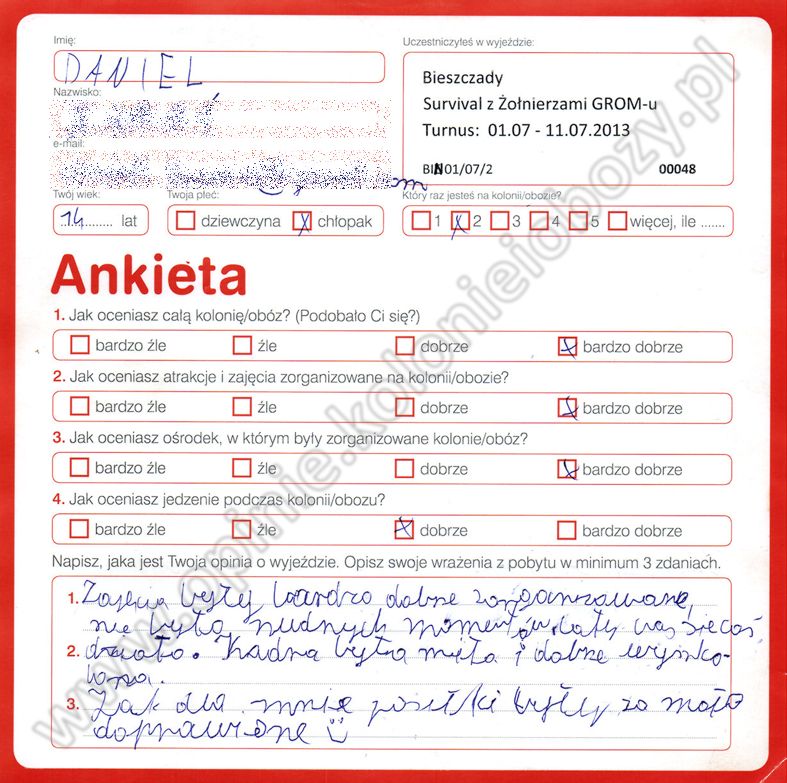 Imię:
DANIEL
Nazwisko:
e-mail:
Twój wiek:
14 lat
Twoja płeć:
dziewczyna chłopak
Uczestniczyłeś w wyjeździe:
Bieszczady
Survival z Żołnierzami GROM-u
Turnus: 01.07 - 11.07.2013
BIN01/07/2 00048
Który raz jesteś na kolonii/obozie?
1 2 3 4 5 więcej, ile .......
Ankieta
1. Jak oceniasz całą kolonię/obóz? (Podobało Ci się?)
bardzo źle źle dobrze bardzo dobrze
2. Jak oceniasz atrakcje i zajęcia zorganizowane na kolonii/obozie?
bardzo źle źle dobrze bardzo dobrze
3. Jak oceniasz ośrodek, w którym były zorganizowane kolonie/obóz?
bardzo źle źle dobrze bardzo dobrze
4. Jak oceniasz jedzenie podczas kolonii/obozu?
bardzo źle źle dobrze bardzo dobrze
Napisz, jaka jest Twoja opinia o wyjeździe. Opisz swoje wrażenia z pobytu w minimum 3 zdaniach.
1. Zajęcia były bardzo dobrze zorganizowane,
nie było nudnych momentów, cały czas się coś
2. działo. Kadra była miła i dobrze wyszko-
lona.
3. Jak dla mnie posiłki były za mało
doprawione
www.opinie.kolonieiobozy.pl